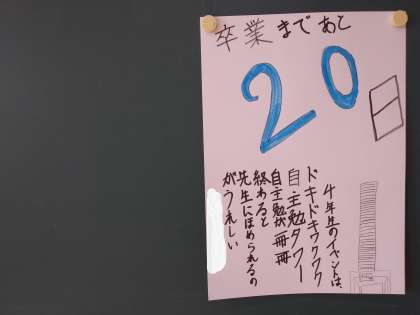 卒業まであと
20日
4年生のイベントは、
ドキドキワクワク
自主勉タワー
自主勉が一冊一冊
終わると
先生にほめられるの
がうれしい